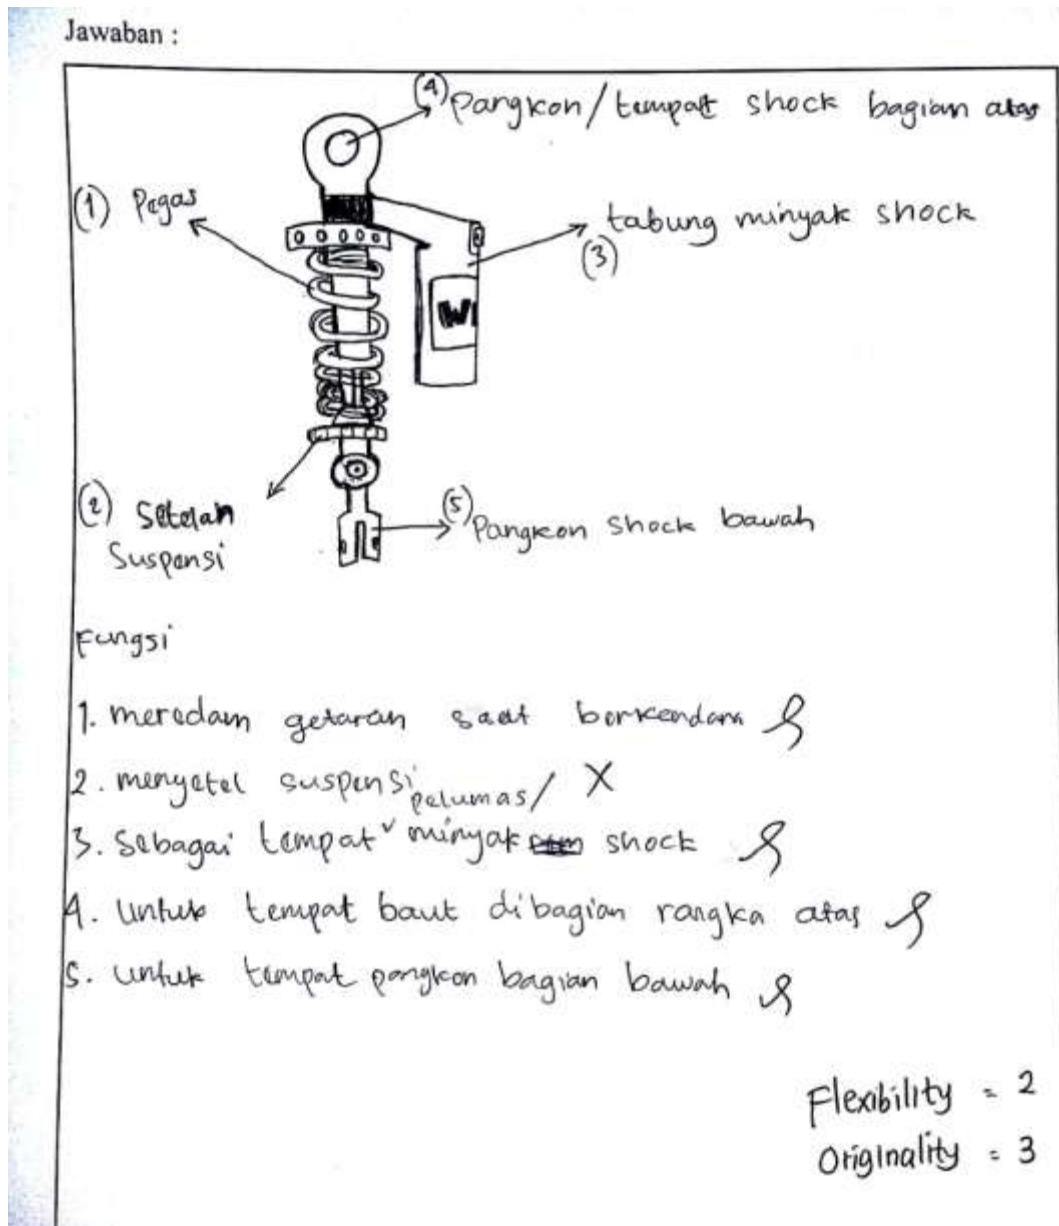 Jawaban :
(4) Pangkon/tempat shock bagian atas
(1) Pegas
tabung minyak shock
(3)
W
(2) Setelan
Suspensi
(5) Pangkon shock bawah
Fungsi
1. meredam getaran saat berkendara
2. menyetel suspensi X
pelumas/
3. Sebagai tempat v minyak shock
4. Untuk tempat baut dibagian rangka atas
5. untuk tempat pangkon bagian bawah
Flexibility = 2
Originality = 3